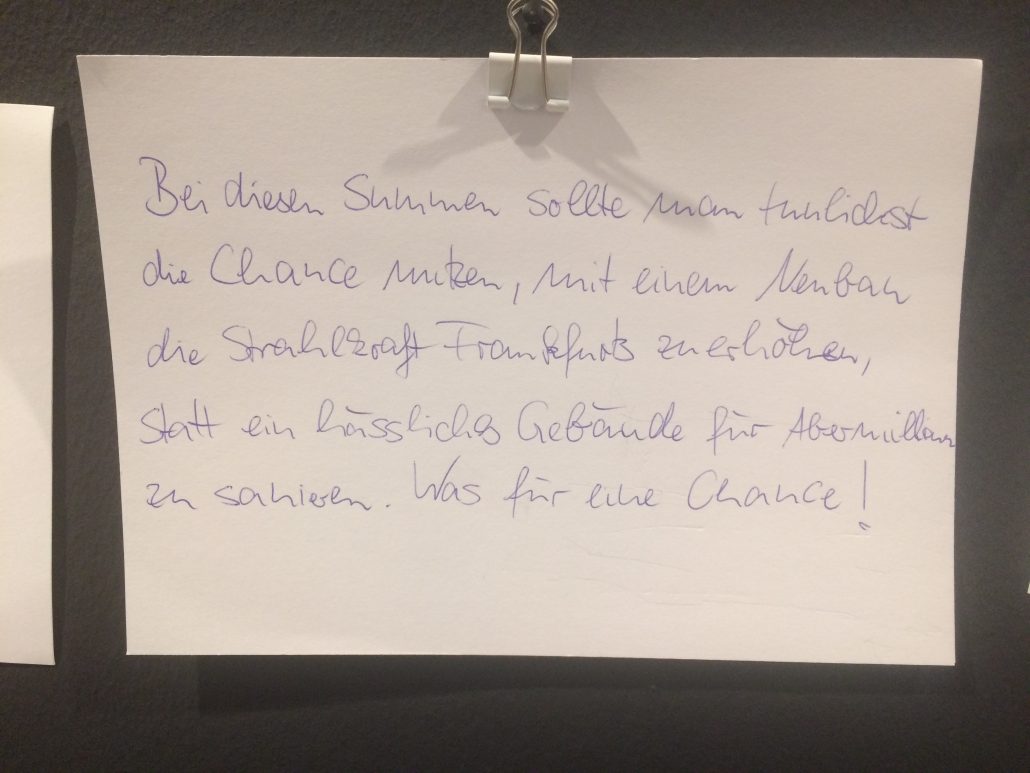 Bei diesen Summen sollte man tunlichst
die Chance nutzen, mit einem Neubau
die Strahlkraft Frankfurts zu erhöhen,
statt ein hässliches Gebäude für Abermillionen
zu sanieren. Was für eine Chance!